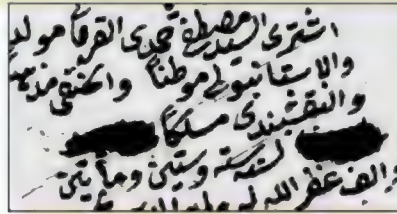 اشترى السيد مصطفى حمدى القرمى مولدا
والاستانبولى موطنا والحنفى مذهبا
والنقشبندى مسلكا
لسنة ستة وستين ومأيتين
والف غفر الله له